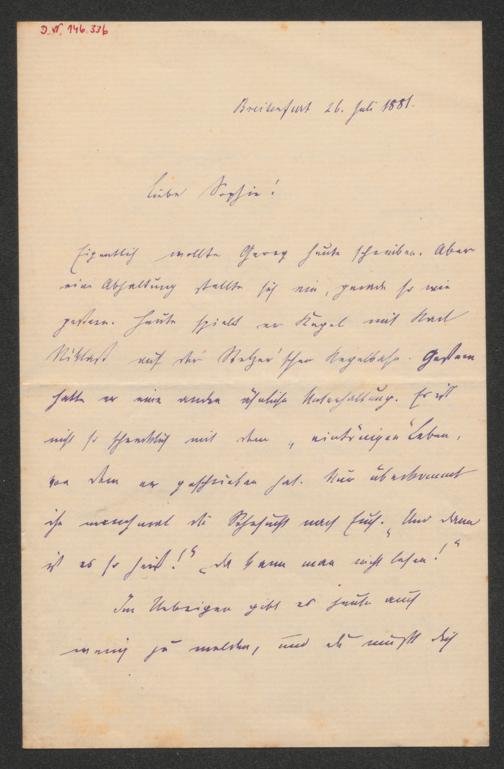 J.N. 146.336
Breitenfurt 26. Juli 1881.
Liebe Sophie!
Eigentlich wollte Georg heute schreiben. Aber
eine Abhaltung stellte sich ein, gerade so wie
gestern. Heute spielt er Kegel mit Karl
auf der Stelzer'schen Kegelbahn. Gestern
hatte er eine andre ähnliche Unterhaltung. Es ist
nicht so schrecklich mit dem „eintönigen" Leben,
von dem er geschrieben hat. Nur überkommt
ihn manchmal die Sehnsucht nach Euch. „Und dann
ist es so heiß!" „Da kann man nicht lesen!"
Im Uebrigen gibt es heute auch
wenig zu melden, und du mußt dich